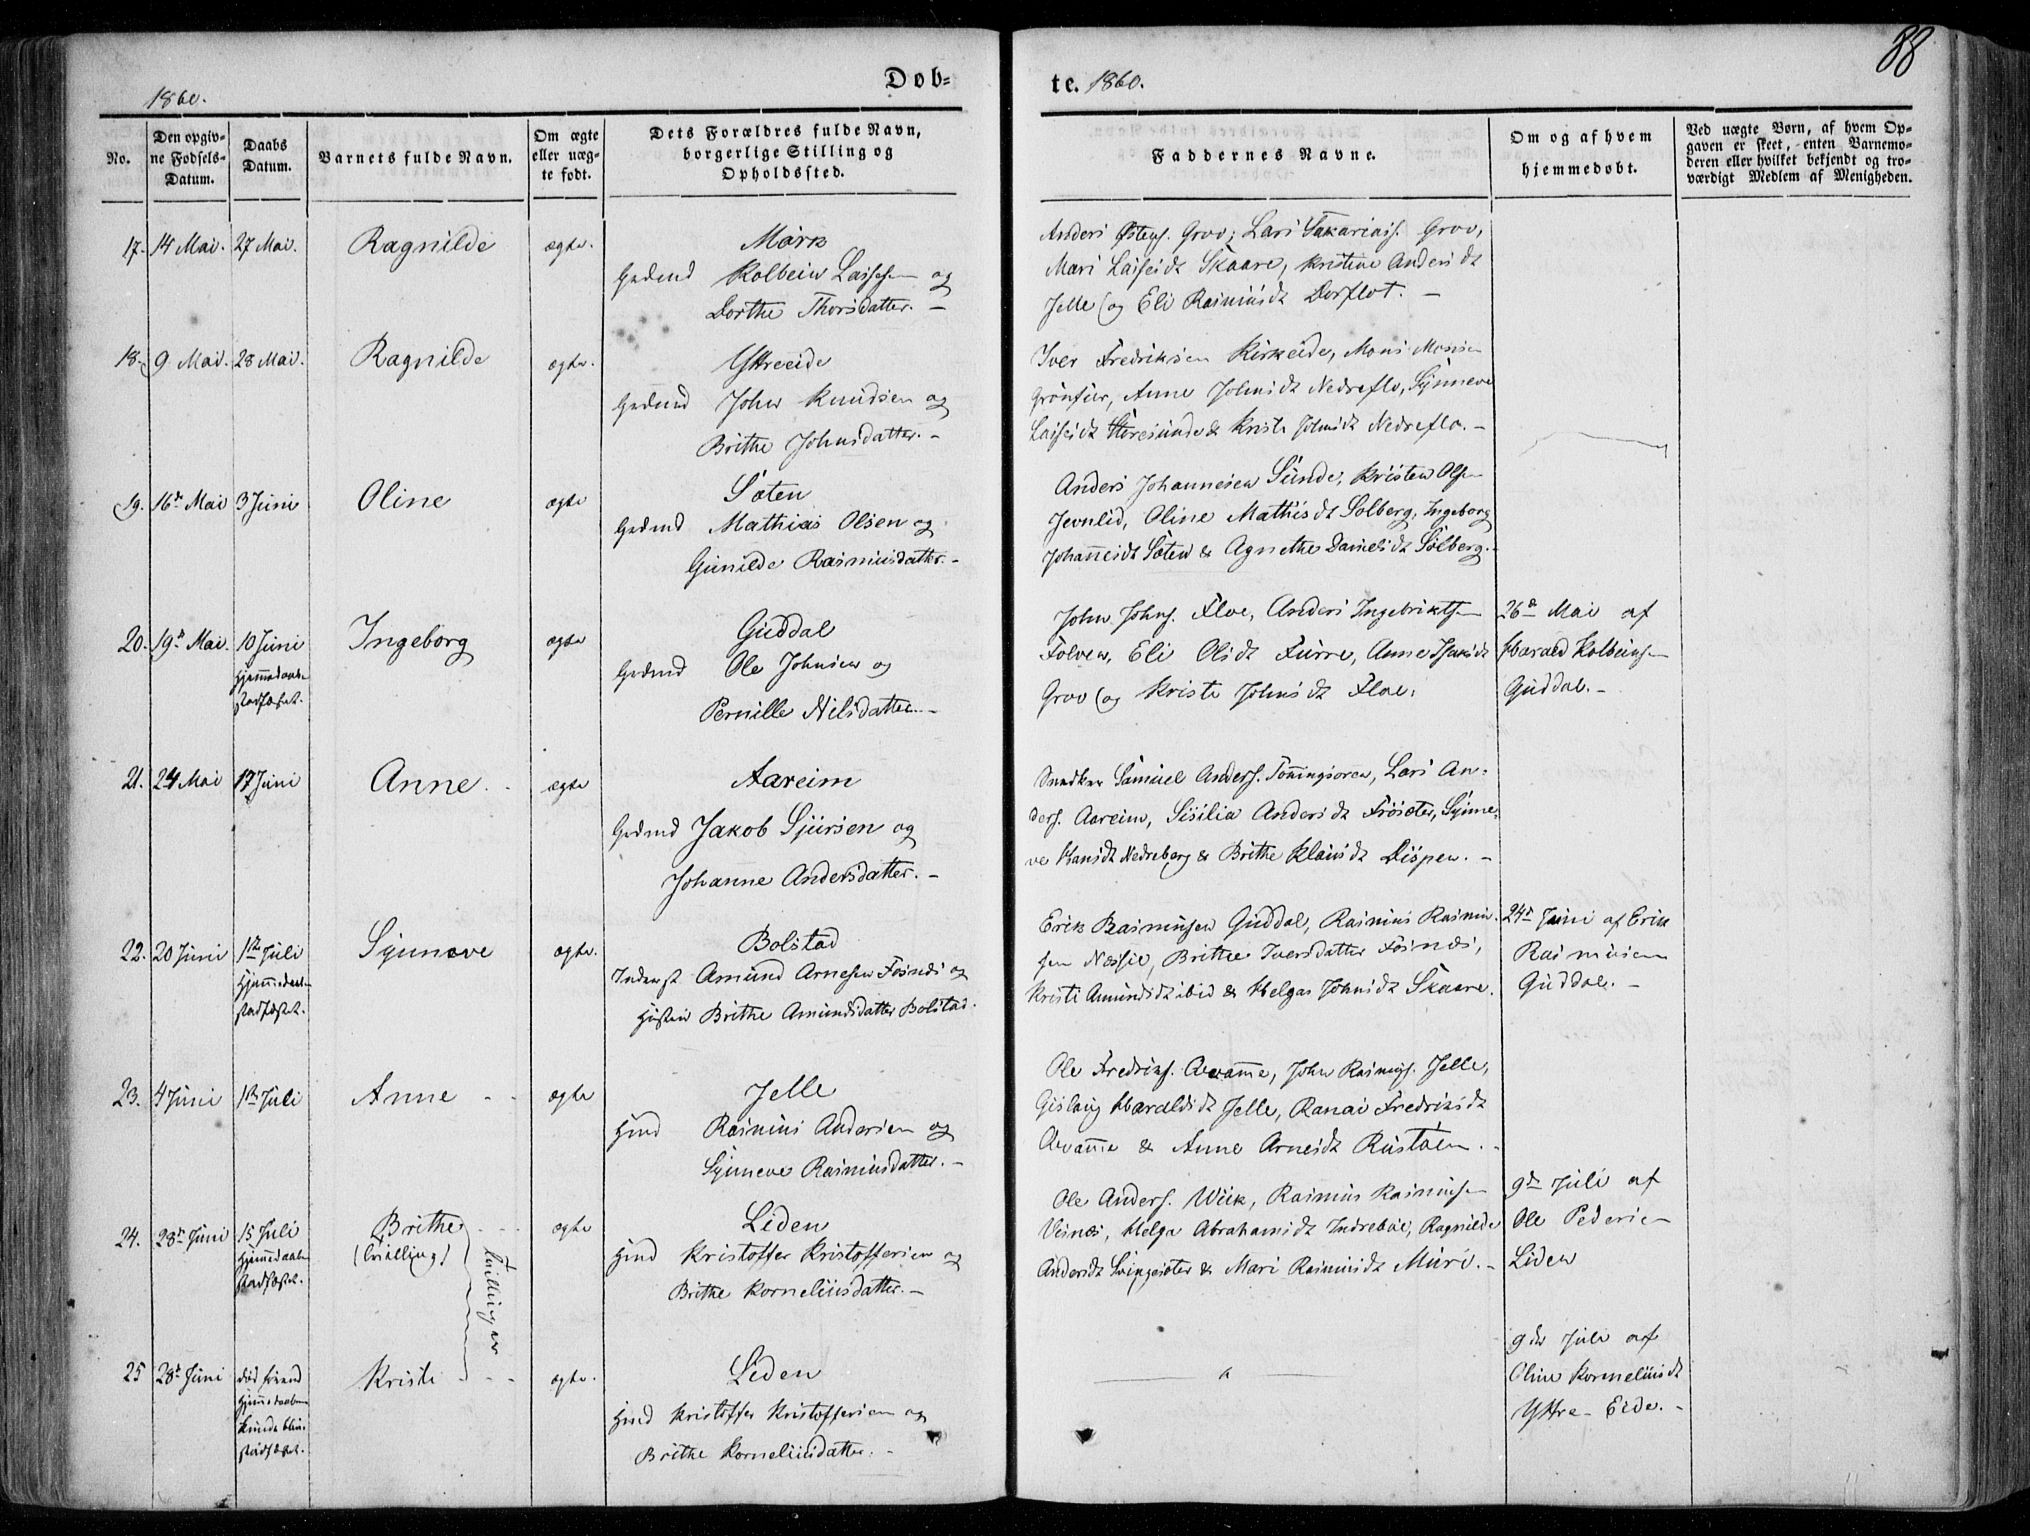 1860.
Døb=
te. 1860.
88
No.
Den opgiv=
ne Fødsels=
Datum.
Daabs
Datum.
Barnets fulde Navn.
Om ægte
eller uæg=
te født.
Dets Forældres fulde Navn,
borgerlige Stilling og
Opholdssted.
Faddernes Navne.
Om og af hvem
hjemmedøbt.
Ved uægte Børn, af hvem Op=
gaven er skeet, enten Barnemo=
deren eller hvilket bekjendt og tro=
værdigt Medlem af Menigheden.
17. 14 Mai. 27 Mai. Ragnilde ægte. Mørk
Grdmd Kolbein Lasses. og
Dorthe Thorsdatter. -
Anders Østens. Grov, Lars Sakarias. Grov,
Mari Lassesdt Skaare, Kristine Andersdt
Jelle og Eli Rasmusdt Dorflot. -
18. 9 Mai. 28 Mai. Ragnilde ægte. Yttreeide
Grdmd John Knudsen og
Brithe Johnsdatter. -
Iver Fredriksen Kirkeide, Mons Monsen
Grønfur, Anne Johnsdt Nedreflo, Synneve
Lassesdt & Kristi Johnsdt Nedreflo. -
19. 16de Mai 3 Juni Oline ægte Sæten
Grdmd Mathias Olsen og
Gunilde Rasmusdatter. -
Anders Johannesen Sunde, Kristen Olsen
Jevnlid, Oline Mathisdt Solberg, Ingeborg
Johannesdt Sæten & Agnethe Danielsdt Solberg. -
20. 19de Mai. 10 Juni Ingeborg ægte Guddal
Hjemmedaaben
stadfæstet.
Grdmd Ole Johnsen og
Pernille Nilsdatter. -
John Johns. Floe, Anders Ingebriktsen
Folven, Eli Olsdt Furre, Anne Isaksdt
Grov og Kristi Johnsdt Floe.
26de Mai af
Harald Kolbeinsen
Guddal. -
21. 24 Mai 17 Juni Anne ægte Aareim
Grdmd Jakob Sjursen og
Johanne Andersdatter. -
Snedker Samuel Anders. Tonningsøren, Lars An=
ders. Aareim, Sisilia Andersdt Frøseter, Synne=
ve Hansdt Nedreberg & Brithe Klausdt Dispen. -
22. 20 Juni 1ste Juli Synneve ægte. Bolstad
Hjemmedaaben
stadfæstet.
Inderst Amund Arnesen Fosnæs og
Hustru Brithe Amundsdatter Bolstad.
Erik Rasmusen Guddal, Rasmus Rasmu=
sen Nessie, Brithe Iversdatter Fosnæs,
Kristi Amundsdt ibid & Helga Johnsdt Skaare.
24de Juni af Erik
Rasmusen
Guddal. -
23. 4 Juni 1ste Juli Anne ægte Jelle
Hmd Rasmus Andersen og
Synneve Rasmusdatter. -
Ole Fredriks. Qvamme, John Rasmus. Jelle,
Gislaug Haraldsdt Jelle, Ranai Fredriksdt
Qvamme & Anne Arnesdt Rustøen.
24. 28de Juni 15 Juli Brithe ægte Liden
Hjemmedaaben
stadfæstet.
(tvilling)
Tvillinger
Hmd Kristoffer Kristoffersen og
Brithe Korneliusdatter. -
Ole Anders. Wiik, Rasmus Rasmusen
Visnæs, Helga Abrahamsdt Indrebøe, Ragnilde
Andersdt & Mari Rasmusdt Muri. -
9de Juli af
Ole Pedersen
Liden
25 28de Juni død førend Kristi ægte. Liden
Hjemmedaaben
kunde blive
stadfæstet.
Hmd Kristoffer Kristoffersen og
Brithe Korneliusdatter. -
9de Juli af
Oline Korneliusdt
Yttre-Eide. -